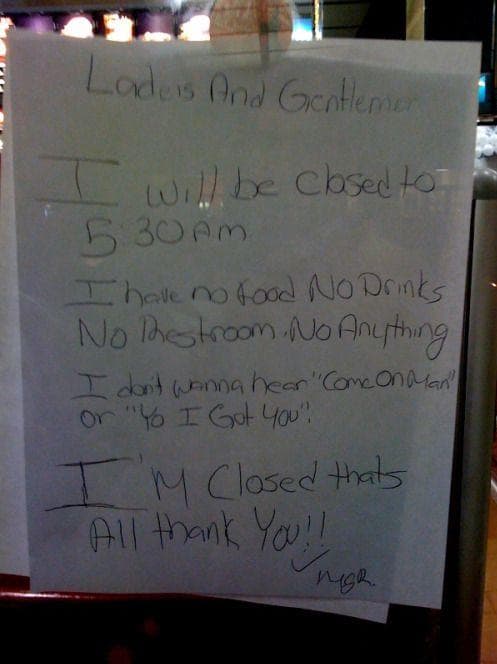 Ladeis And Gentlemen
I will be closed to
5:30 Am
I have no food No Drinks
No Restroom. No Anything
I don't wanna hear "Come On Man"
or "Yo I Got You".
I'M Closed thats
All thank You!!
MGR.